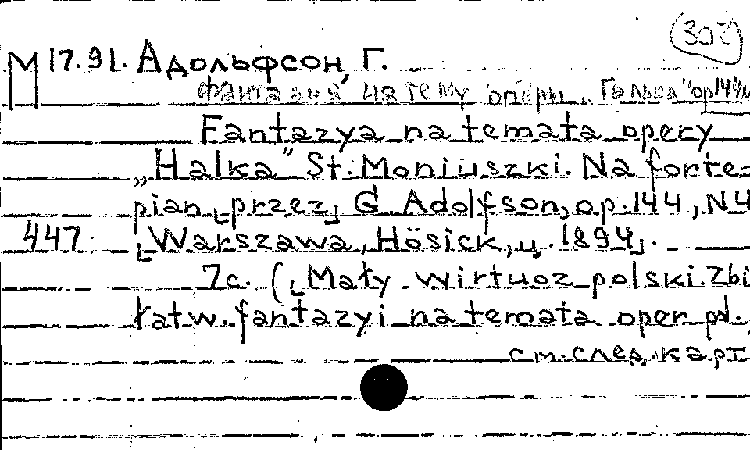 302
М 17.91. Адольфсон, Г.
Фантазия на тему оперы „Галька" ор 144 N4
Fantazya na temata opery
„Halka" St. Moniuszki. Na forte-
pian [przez] G Adolfson, op. 144, N4
447 [Warszawa, Hösick, ц. 1894].
7с. ([Mały wirtuoz polski. Zbi
łatw. fantazyi na temata oper pol.
см. след. карт